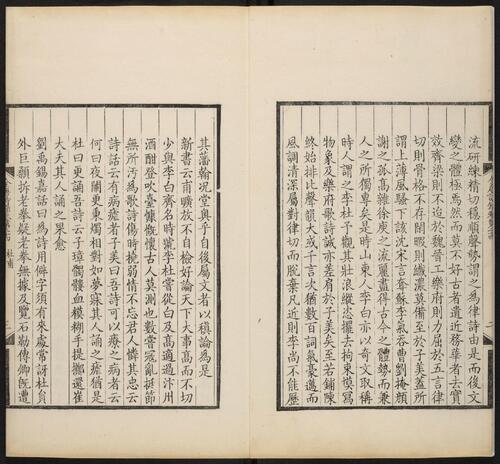 流研練精切穩順聲勢謂之為律詩由是而後文
變之體極焉然而莫不好古者遺近務華者去實
效齊梁則不逮於魏晉工樂府則力屈於五言律
切則骨格不存閑暇則纖濃莫備至於子美蓋所
謂上薄風騷下該沈宋言奪蘇李氣吞曹劉掩顏
謝之孤高雜徐庾之流麗盡得古今之體勢而兼
人之所獨專矣是時山東人李白亦以奇文取稱
時人謂之李杜予觀其壯浪縱恣擺去拘束模寫
物象及樂府歌詩誠亦差肩於子美矣至若鋪陳
終始排比聲韻大或千言次猶數百詞氣豪邁而
風調清深屬對律切而脫棄凡近則李尚不能歷
其藩翰況堂奧乎自後屬文者以稹論為是
新書云甫曠放不自檢好論天下大事高而不切
少與李白齊名時號李杜嘗從白及高適過汴州
酒酣登吹臺慷慨懷古人莫測也數嘗寇亂挺節
無所汚為歌詩傷時撓弱情不忘君人憐其忠云
詩話云有病瘧者子美曰吾詩可以療之病者云
何曰夜闌更秉燭相對如夢寐其人誦之瘧猶是
杜曰更誦吾詩云子璋髑髏血糢糊手提擲還崔
大夫其人誦之果愈
劉禹錫嘉話曰為詩用僻字須有來處常訝杜員
外巨顙拆老拳疑老拳無據及覽石勒傳卿旣遭
杜甫